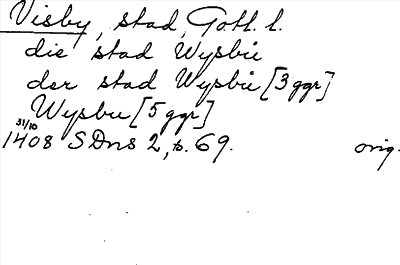 Visby, stad, Gotl. l.
die stad Wysbu
der stad Wysbu [3 ggr]
Wysbu [5 ggr]
31/10 1408 SDns 2, s. 69. orig.